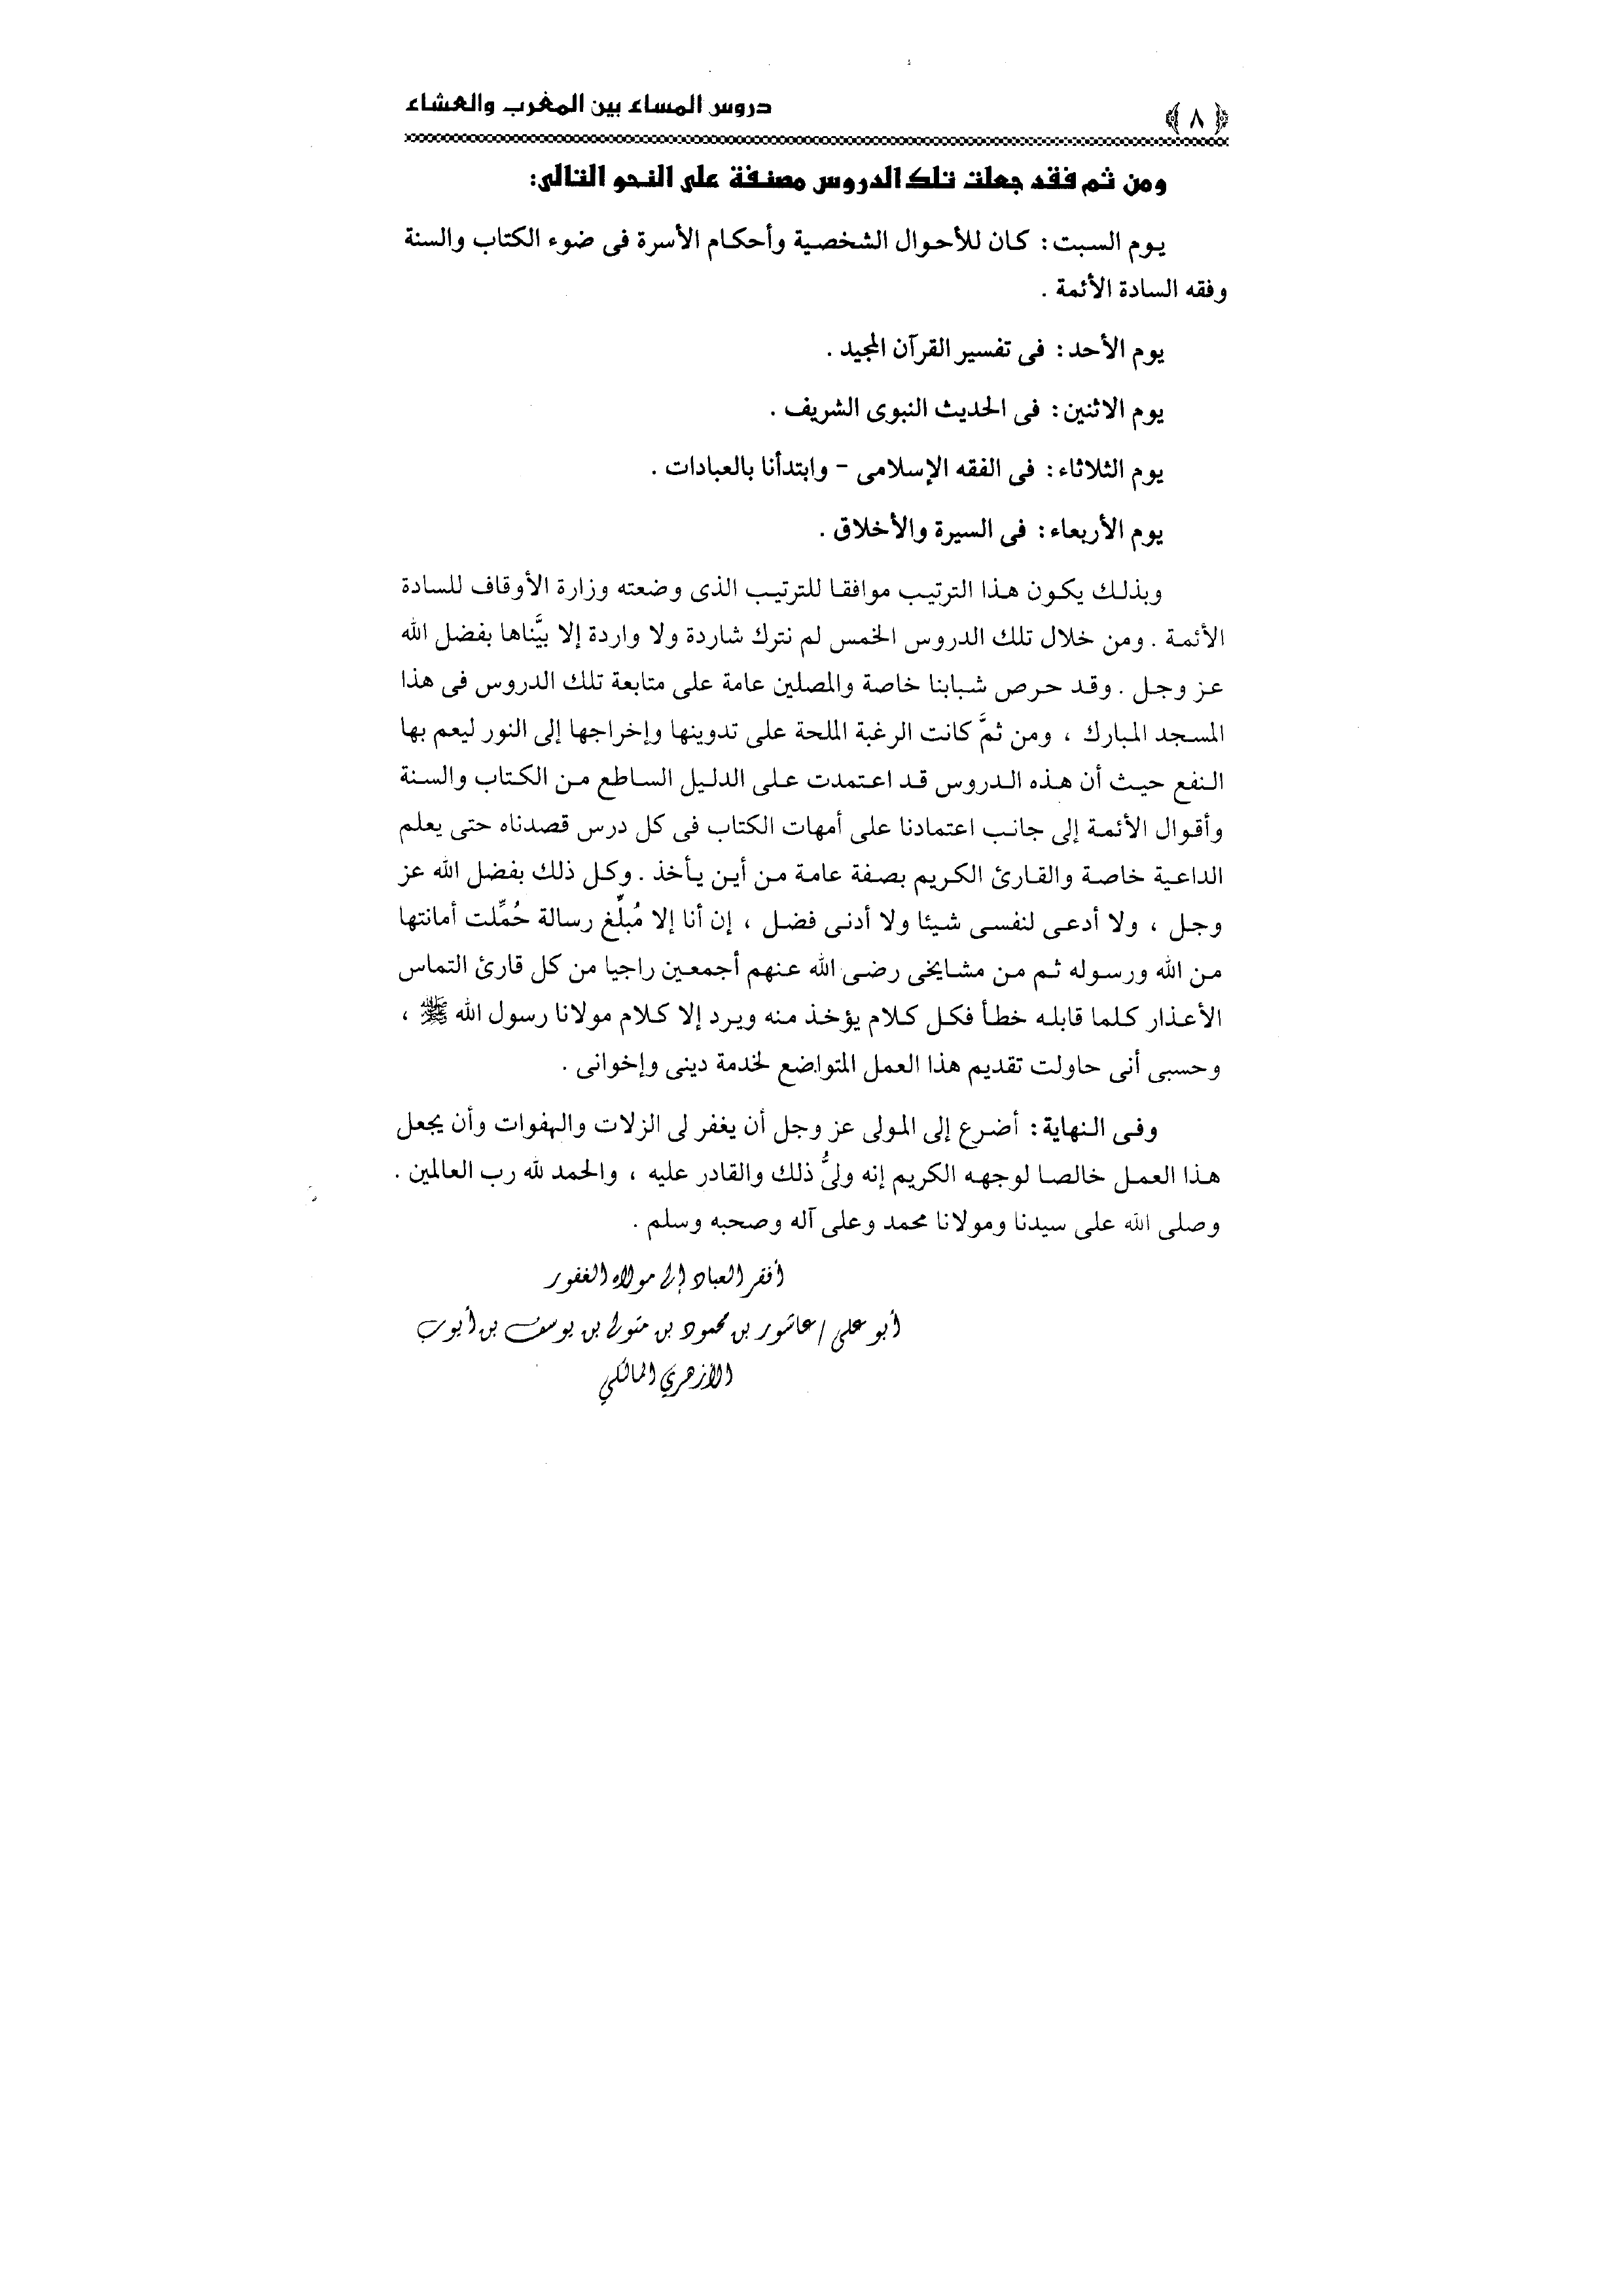 ﴿ ٨ ﴾ دروس المساء بين المغرب والعشاء
ومن ثم فقد جعلت تلك الدروس مصنفة على النحو التالى:
يوم السبت: كان للأحوال الشخصية وأحكام الأسرة فى ضوء الكتاب والسنة
وفقه السادة الأئمة .
يوم الأحد: فى تفسير القرآن المجيد .
يوم الاثنين: فى الحديث النبوى الشريف .
يوم الثلاثاء: فى الفقه الإسلامى - وابتدأنا بالعبادات .
يوم الأربعاء: فى السيرة والأخلاق .
وبذلك يكون هذا الترتيب موافقا للترتيب الذى وضعته وزارة الأوقاف للسادة
الأئمة . ومن خلال تلك الدروس الخمس لم نترك شاردة ولا واردة إلا بيَّناها بفضل الله
عز وجل . وقد حرص شبابنا خاصة والمصلين عامة على متابعة تلك الدروس فى هذا
المسجد المبارك ، ومن ثمَّ كانت الرغبة الملحة على تدوينها وإخراجها إلى النور ليعم بها
النفع حيث أن هذه الدروس قد اعتمدت على الدليل الساطع من الكتاب والسنة
وأقوال الأئمة إلى جانب اعتمادنا على أمهات الكتاب فى كل درس قصدناه حتى يعلم
الداعية خاصة والقارئ الكريم بصفة عامة من أين يأخذ . وكل ذلك بفضل الله عز
وجل ، ولا أدعى لنفسى شيئا ولا أدنى فضل ، إن أنا إلا مُبلِّغ رسالة حُمِّلت أمانتها
من الله ورسوله ثم من مشايخى رضى الله عنهم أجمعين راجيا من كل قارئ التماس
الأعذار كلما قابله خطأ فكل كلام يؤخذ منه ويرد إلا كلام مولانا رسول الله ﷺ ،
وحسبى أنى حاولت تقديم هذا العمل المتواضع لخدمة دينى وإخوانى .
وفى النهاية: أضرع إلى المولى عز وجل أن يغفر لى الزلات والهفوات وأن يجعل
هذا العمل خالصا لوجهه الكريم إنه ولىُّ ذلك والقادر عليه ، والحمد لله رب العالمين .
وصلى الله على سيدنا ومولانا محمد وعلى آله وصحبه وسلم .
أفقر العباد إلى مولاه الغفور
أبو على / عاشور بن محمود بن متولى بن يوسف بن أيوب
الأزهري المالكي